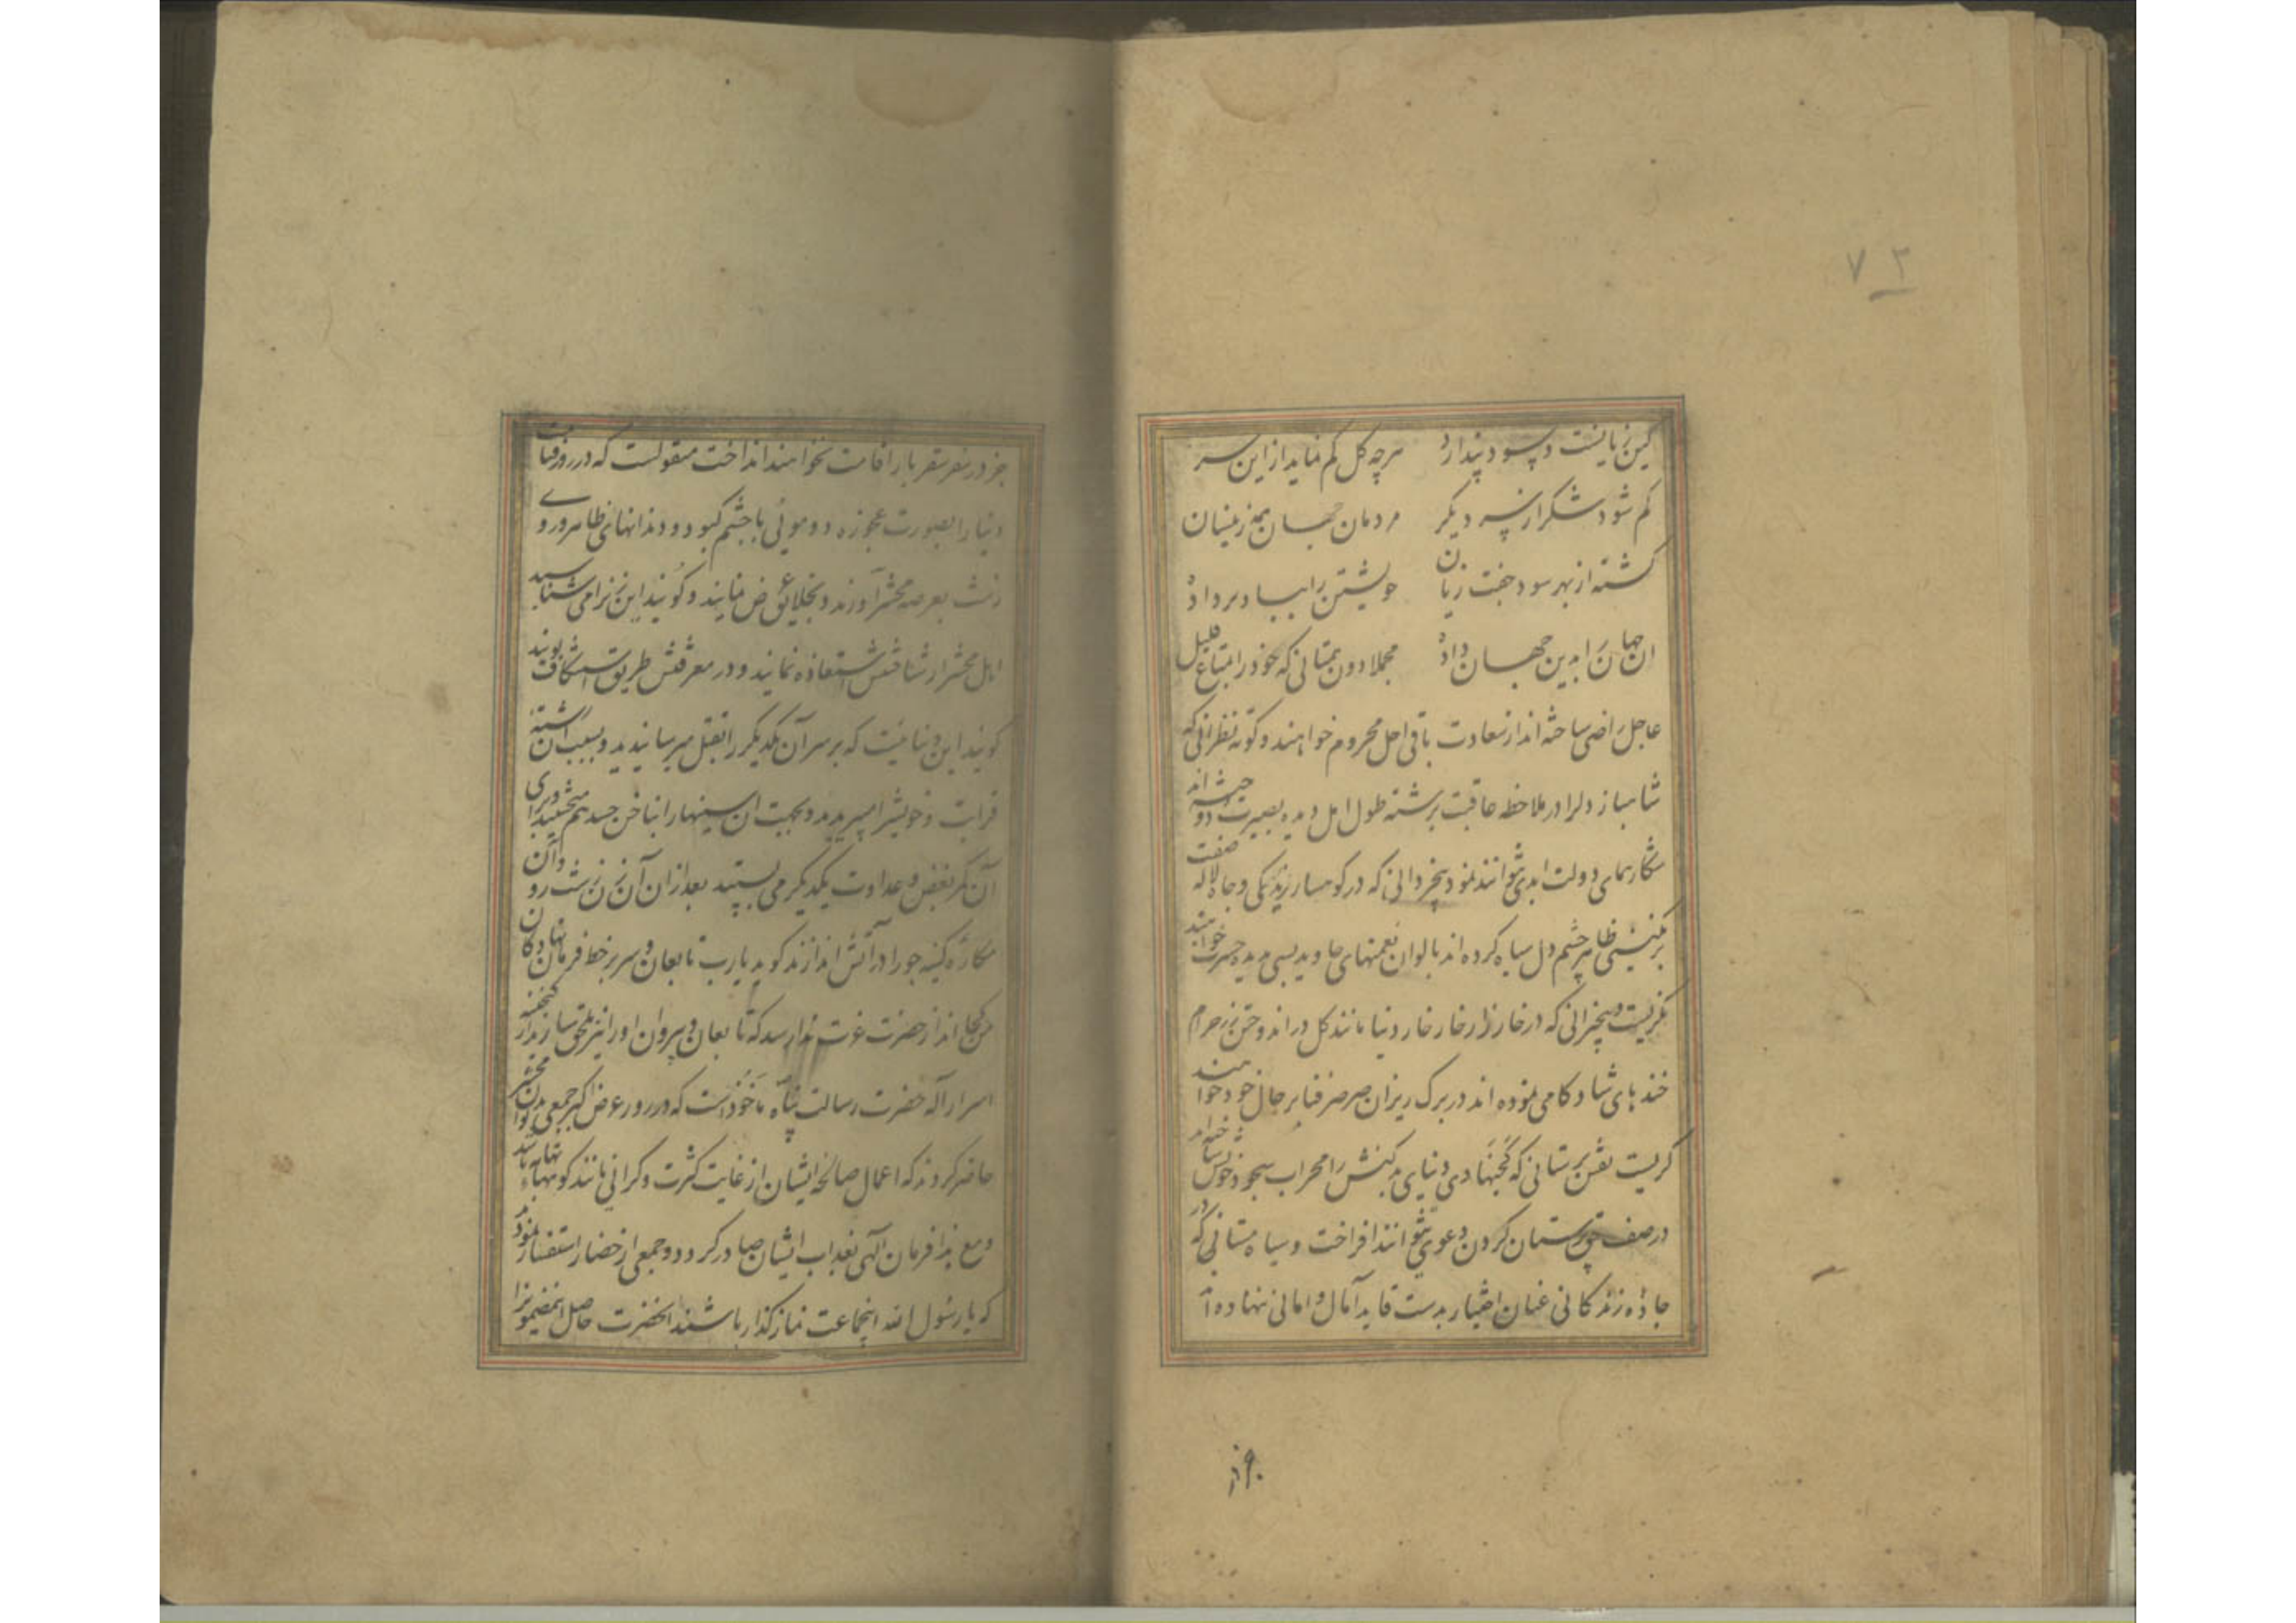 ۷۳
کین زیانیست و سود پندارد هر چه گل کم نماید از این سر
کم شود شکر از سر دیگر مردمان جهان همه زینسان
گشته از بهر سود جفت زیان خویشتن را بباد بر داد
ان جهان را بدین جهان داد مجملا دون همتانی که خود را بمتاع قلیل
عاجل راضی ساخته اند از سعادت باقی اجل محروم خواهند و کوته نظرانی که
شاهباز دلرا در ملاحظه عاقبت برشته طول امل دیده بصیرت دوخته اند
شکار همای دولت ابدی نتوانند نمود بیخردانی که در کوهسار زندگی و جاه لاله صفت
برنگینی ظاهر چشم دل سیاه کرده اند بالوان نعمتهای جاوید بسی بدیده حسرت خواهند
نگریست و بیخبرانی که در خارزار خار خار دنیا مانند گل در اندوختن زر خرم
خندهای شادکامی نموده اند در برگ ریزان صرصر فنا بر حال خود خواهند
گریست نقش پرستانی که گنجهای دنیای را محراب سجود خویش ساخته اند
در صف حق پرستان گردن دعوی نتوانند افراخت و سیاه مستانی که در
جاده زندگانی عنان اختیار بدست قاید آمال و امانی نهاده اند
جز در سفر سقر بار اقامت نخواهند انداخت منقولست که در روز قیامت
دنیا را بصورت عجوزه دو موئی با چشم کبود و دندانهای ظاهر و روی
زشت بعرصه محشر آورند و بخلایق عرض نمایند و گویند این زنرا می شناسید
اهل محشر از شناختنش استعاذه نمایند و در معرفتش طریق استنکاف پویند
گویند این دنیائیست که بر سر آن یکدیگر را بقتل میرسانیدید و بسبب آن رشته
قرابت و خویشی را میبریدید و بجهت ان سینها را بناخن حسد هم میخستید و برای
آن کمر بغض و عداوت یکدیگر می بستید بعد از ان آن زن زشت رو و آن
مکاره کینه جو را در آتش اندازند گوید یا رب تابعان و سر بر خط فرمان نهادگان
من کجا اند از حضرت عزت ندا رسد که تابعان و پیروان او را نیز ملحق سازند از گنجینه
اسرار آله حضرت رسالت پناه ماخوذ است که در روز عرض اکبر جمعی بدیوان محشر
حاضر گردند که اعمال صالحه ایشان از غایت کثرت و گرانی مانند کوههای تهامه باشد
و مع هذا فرمان آلهی بعذاب ایشان صادر گردد و جمعی از حضار استفسار نمودند
که یا رسول الله اینجماعت نماز گذار باشند انحضرت حاصل اینمضمونرا